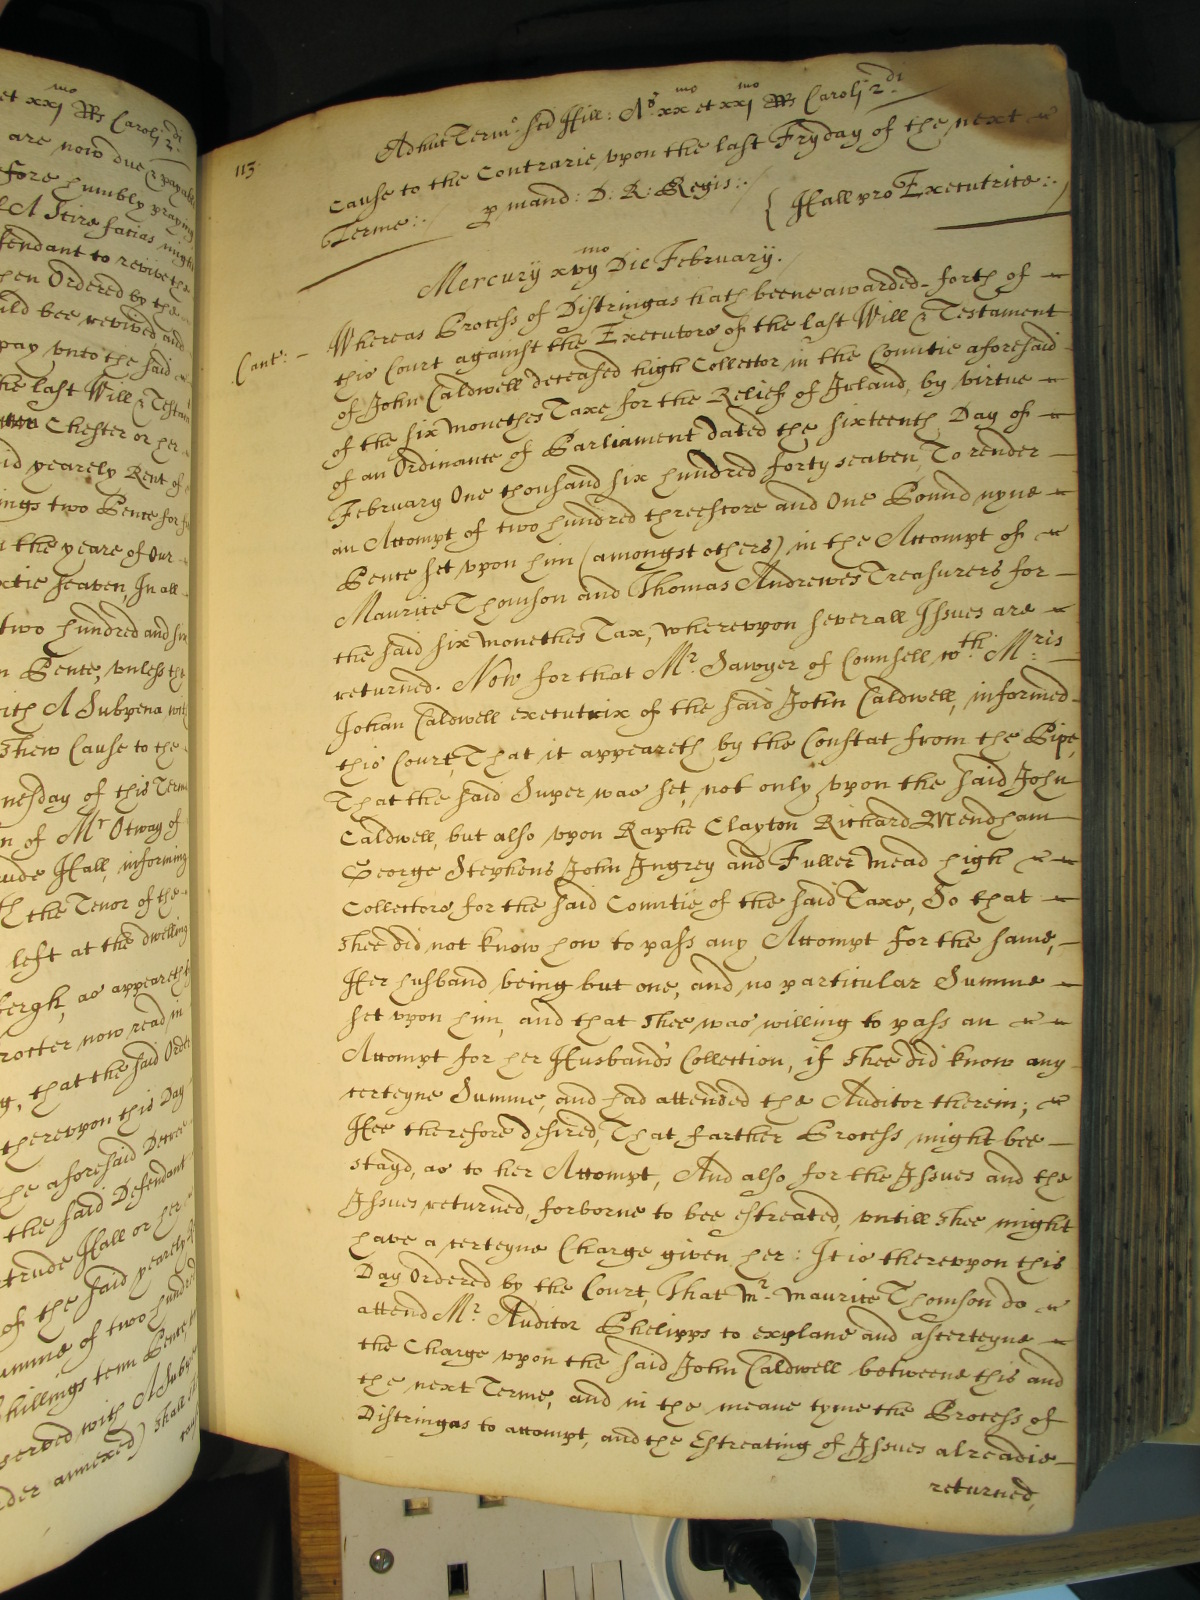 et xxj mo Rs Caroli 2 di
are now due & payable
fore humbly praying
A Scire facias might
fendant to revive the
hen Ordered by the
uld bee revived and
pay vnto the said
he last Will & Testam
Chester or her
id yearely Rent of
ings two Pence for
the yeare of Our
xtie seaven, In all
two hundred and six
n Pence, vnlesse they
ith A Subpena
shew Cause to the
nesday of this Terme
n of Mr Otway of
ude Hall, informing
th the Tenor of the
left at the dwelling
bergh, as appeareth
rocter now read in
g, that the said Order
therevpon this Day
he aforesaid Decree
the said Defendant
trude Hall or her
of the said yearely
umme of two hundred
shillings tenn Pence
served with A Subp
der annexed) shall
113.
Adhuc Termo. Sci Hill: Ao xx mo et xxj mo Rs Caroli 2 di.
Cause to the Contrarie, vpon the last Fryday of the next
Terme:. / p mand: D: R: Regis:. / { Hall pro Executrice:. /
Mercurij xvij mo Die February. /
Cant: - Whereas Process of Distringas hath beene awarded forth of
this Court against the Executors of the last Will & Testament
of John Caldwell deceased high Collector in the Countie aforesaid
of the six Monethes Taxe for the Releif of Irland, by virtue
of an Ordinance of Parliament dated the sixteenth Day of
February One thousand six hundred forty seaven, To render
an Accompt of two hundred threescore and One Pound nyne
Pence set vpon him (amongst others) in the Accompt of
Maurice Thomson and Thomas Andrewes Treasurers for
the said six monethes Tax, wherevpon severall Issues are
returned. Now for that Mr. Sawyer of Counsell wth. Mris.
Johan Caldwell executrix of the said John Caldwell, informed
this Court, That it appeareth by the Constat from the Pipe,
That the said Super was set, not only vpon the said John
Caldwell, but also vpon Raphe Clayton Richard Mendham
George Stephens John Ingrey and Fuller Mead high
Collectors for the said Countie of the said Taxe, So that
shee did not know how to pass any Accompt for the same,
Her husband being but one, and no particular Summe
set vpon him, and that shee was willing to pass an
Accompt for her Husbands Collection, if shee did know any
certeyne Summe, and had attended the Auditor therein;
Hee therefore desired, That farther Process might bee
stayd, as to her Accompt, And also for the Issues and the
Issues returned, forborne to bee estreated, vntill shee might
have a certeyne Charge given her: It is therevpon this
Day Ordered by the Court, That Mr. Maurice Thomson do
attend Mr. Auditor Phelipps to explane and asterteyne
the Charge vpon the said John Caldwell betweene this and
the next Terme, and in the meane tyme the Process of
Distringas to accompt, and the Estreating of Issues alreadie
returned,